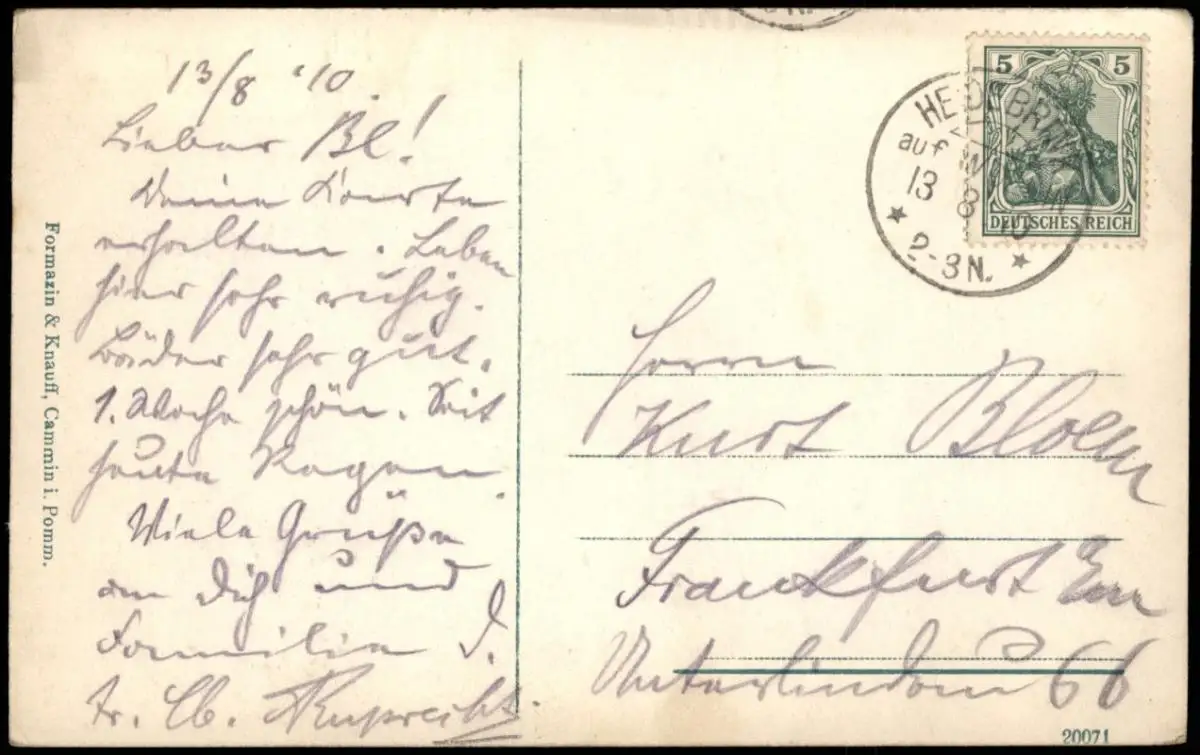 13/8 '10.
Lieber Bl!
Deine Karte
erhalten. Leben
hier sehr ruhig.
Bäder sehr gut.
1. Woche schön. Seit
heute Regen.
Viele Grüße
an Dich und
Familie D.
tr. Cb. Ruprecht.
Formazin & Knauff, Cammin i. Pomm.
5 5
DEUTSCHES REICH
HEIDEBRINK
auf WOLLIN
13 8 10
2-3N.
Herrn
Kurt Bloem
Frankfurt
Unterlindau 66
20071